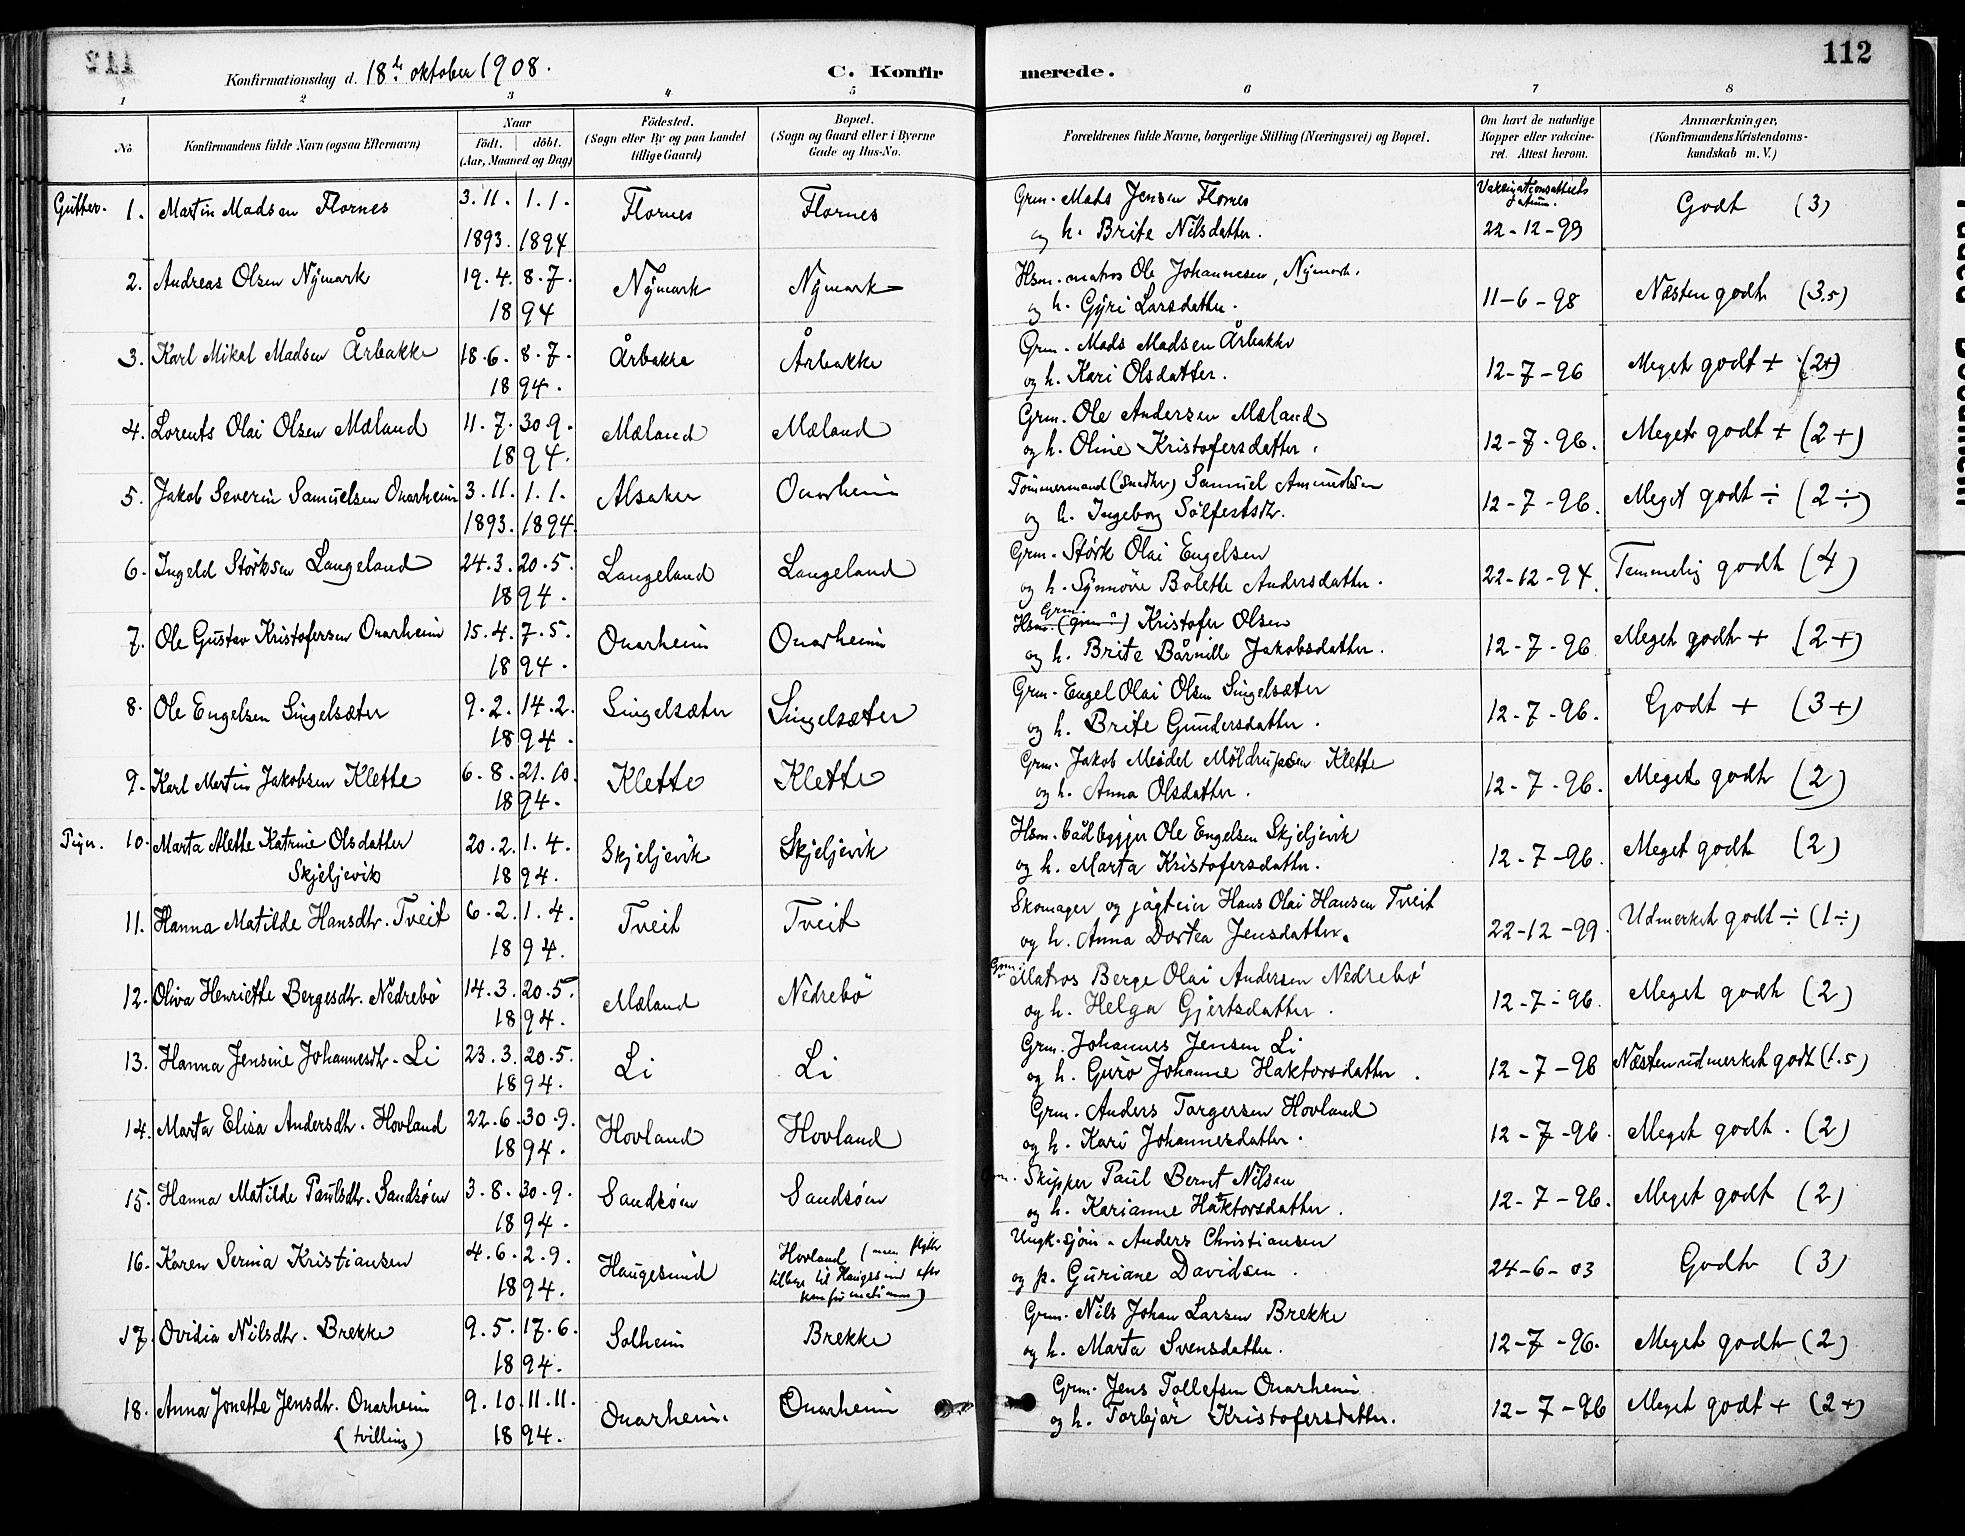 112
Konfirmationsdag d. 18de oktober 1908.
C. Konfirmerede.
1 2 3 4 5 6 7 8
No
Konfirmandens fulde Navn (ogsaa Efternavn)
Naar
födt. döbt.
(Aar, Maaned og Dag)
Födested.
(Sogn eller By og paa Landet
tillige Gaard)
Bopæl.
(Sogn og Gaard eller i Byerne
Gade og Hus-No.
Forældrenes fulde Navne, borgerlige Stilling (Næringsvei) og Bopæl.
Om havt de naturlige
Kopper eller vakcine-
ret. Attest herom.
Anmærkninger,
(Konfirmandens Kristendoms-
kundskab m. V.)
Gutter. 1. Martin Madsen Flornes 3.11. 1.1. Flornes Flornes Grm. Mads Jensen Flornes Vaksinationsattests datum. Godt (3)
1893. 1894 og h. Brite Nilsdatter. 22-12-99
2. Andreas Olsen Nymark 19.4. 8.7. Nymark Nymark Hsm. matros Ole Johannesen, Nymark. 11-6-98 Næsten godt (3.5)
1894 og h. Gyri Larsdatter.
3. Karl Mikal Madsen Årbakke 18.6. 8.7. Årbakke Årbakke Grm. Mads Madsen Årbakke 12-7-96 Meget godt + (2+)
1894. og h. Kari Olsdatter.
4. Lorents Olai Olsen Mæland 11.7. 30.9. Mæland Mæland Grm. Ole Andersen Mæland 12-7-96. Meget godt + (2+)
1894. og h. Oline Kristofersdatter.
5. Jakob Severin Samuelsen Onarheim 3.11. 1.1. Alsaker Onarheim Tømmermand (snedker) Samuel Ammundsen 12-7-96. Meget godt ÷ (2÷)
1893. 1894. og h. Ingeborg Sølfestsdtr.
6. Ingeld Størksen Langeland 24.3. 20.5. Langeland Langeland Grm. Størk Olai Engelsen 22-12-94. Temmelig godt (4)
1894. og h. Synnøve Bolette Andersdatter.
7. Ole Gustav Kristofersen Onarheim 15.4. 7.5. Onarheim Onarheim Grm. Kristofer Olsen 12-7-96 Meget godt + (2+)
1894. og h. Brite Bårnille Jakobsdatter.
8. Ole Engelsen Singelsæter 9.2. 14.2. Singelsæter Singelsæter Grm. Engel Olai Olsen Singelsæter 12-7-96. Godt + (3+)
1894. og h. Brite Gundersdatter.
9. Karl Martin Jakobsen Klette 6.8. 21.10. Klette Klette Grm. Jakob Meidel Møldrupsen Klette 12-7-96. Meget godt (2)
1894. og h. Anna Olsdatter.
Piger. 10. Marta Alette Katrine Olsdatter 20.2. 1.4. Skjeljevik Skjeljevik Hsm. båtbygger Ole Engelsen Skjeljevik 12-7-96. Meget godt (2)
Skjeljevik 1894. og h. Marta Kristofersdatter.
11. Hanna Matilde Hansdtr. Tveit 6.2. 1.4. Tveit Tveit Skomager og jagteier Hans Olai Hansen Tveit 22-12-99. Udmerket godt ÷ (1÷)
1894. og h. Anna Dortea Jensdatter.
12. Oliva Henriette Bergesdtr. Nedrebö 14.3. 20.5. Mæland Nedrebö Grm. Matros Berge Olai Andersen Nedrebö 12-7-96. Meget godt (2)
1894. og h. Helga Gjertsdatter.
13. Hanna Jensine Johannesdtr. Li 23.3. 20.5. Li Li Grm. Johannes Jensen Li 12-7-96 Næsten udmerket godt (1.5)
1894. og h. Guro Johanne Haktorsdatter.
14. Marta Elisa Andersdtr. Hovland 22.6. 30.9. Hovland Hovland Grm. Anders Torgersen Hovland 12-7-96. Meget godt. (2)
1894. og h. Kari Johannesdatter.
15. Hanna Matilde Paulsdtr. Sandsøen 3.8. 30.9. Sandsøen Sandsøen Grm. Skipper Paul Bernt Nilsen 12-7-96. Meget godt (2)
1894. og h. Karianne Haktorsdatter.
16. Karen Serina Kristiansen 4.6. 2.9. Haugesund Hovland (men flytter Ungk. sjøm. Anders Christiansen 24-6-03 Godt (3)
1894. tilbage til Haugesund efter og p. Guriane Davidsen.
konfirmationen)
17. Ovidia Nilsdtr. Brekke 9.5. 17.6. Solheim Brekke Grm. Nils Johan Larsen Brekke 12-7-96. Meget godt (2)
1894. og h. Marta Svensdatter.
18. Anna Jonette Jensdtr. Onarheim 9.10. 11.11. Onarheim. Onarheim Grm. Jens Tollefsen Onarheim 12-7-96 Meget godt + (2+)
(tvilling) 1894. og h. Torbjør Kristofersdatter.